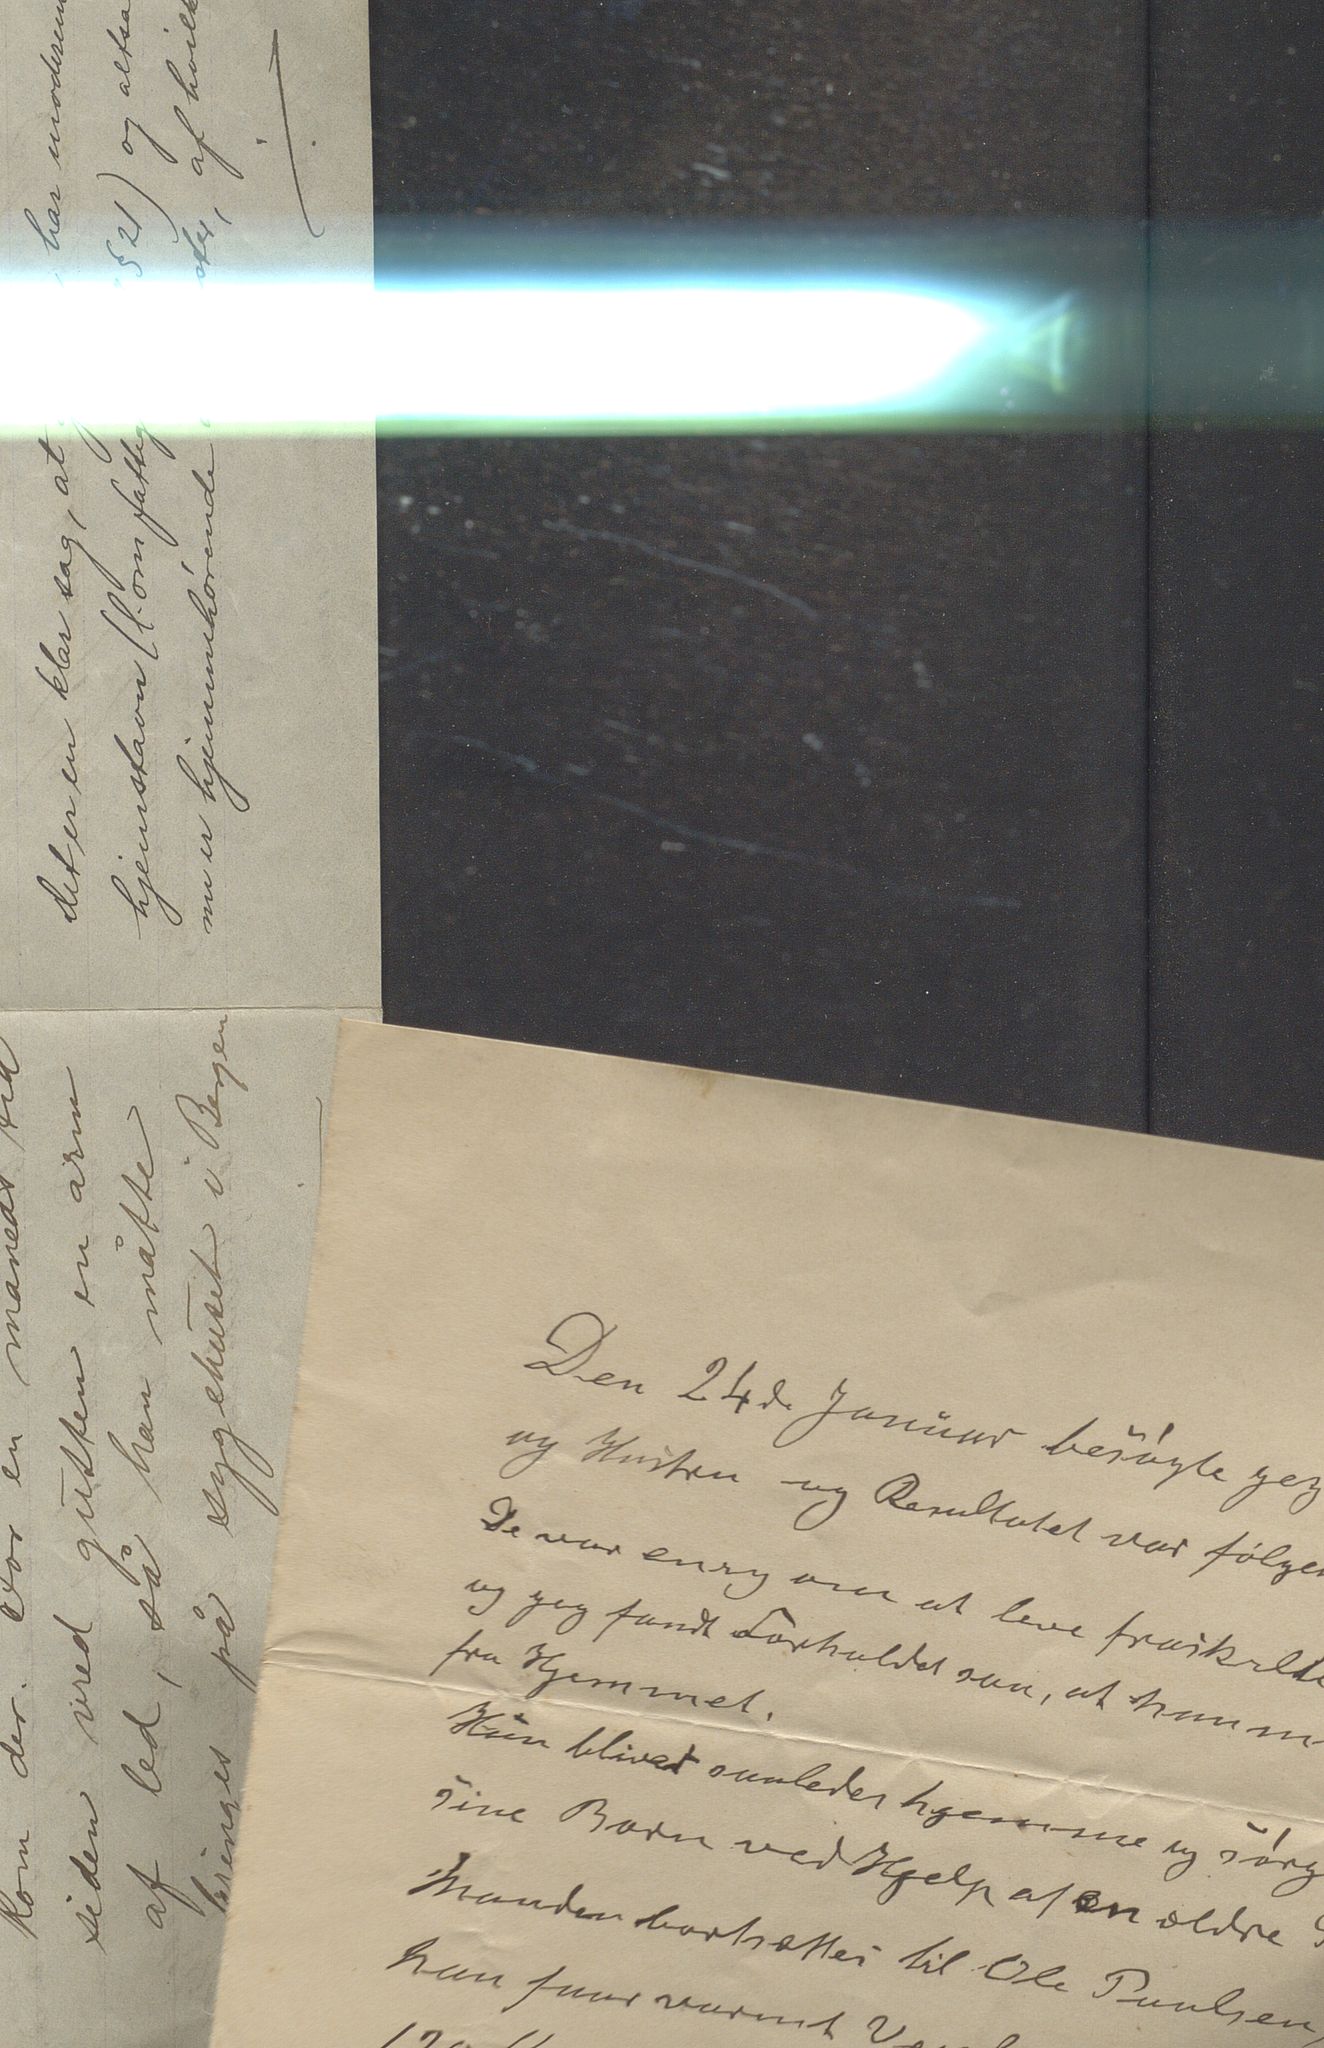 det er en klar sag, at har
hjemstavn (l. om fattig § 21) og altsaa
nu er hjemmehörende af hvilk
kom der. For en måneds tid
siden vred gutten en arm
af led, så han måtte
bringes på sygehuset i Bergen
Den 24de Januar besögte jeg
og Hustru og Resultatet var fölgen
De var enig om at leve fraskelte
og jeg fandt Forholdet saa, at han m
fra Hjemmet.
Hun bliver saaledes hjemme og sörg
sine Barn ved Hjelp af en ældre
Manden bortsættes til Ole Paulsen,
han faar varmt